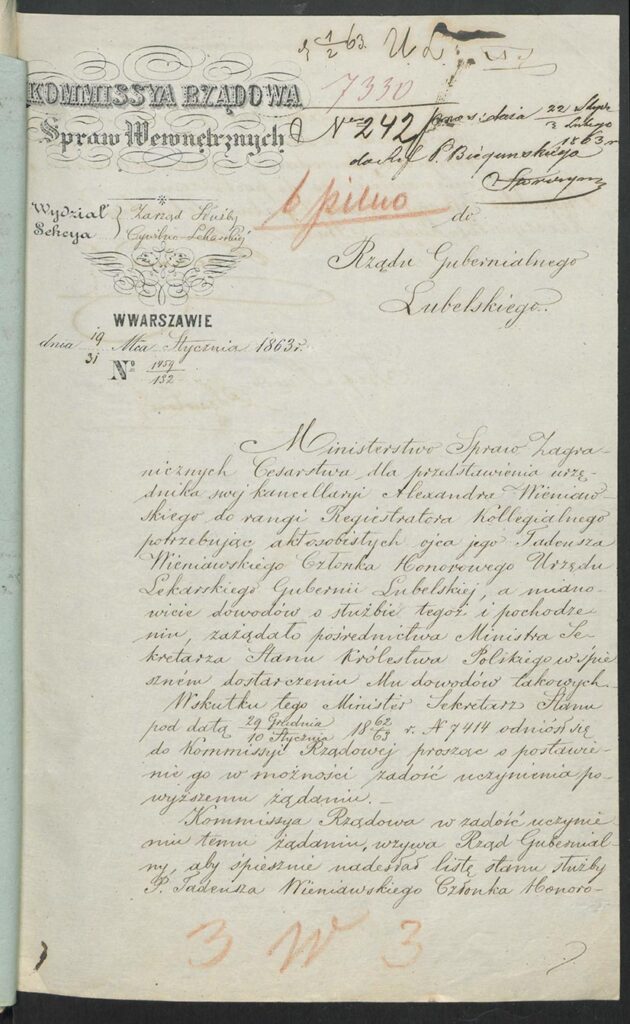 KOMMISSYA RZĄDOWA
Spraw Wewnętrznych
Wydział
Sekcya
Zarząd Służby
Cywilno-Lekarskiej
W WARSZAWIE
dnia 19/31 Mca Stycznia 1863 r.
Nº 1459/132
1/2 63.
7330
Nro 242 dnia 22 Stycz / 3 Lutego
1863 r
do Ref. P. Biegunskiego
b pilno
do
Rządu Gubernialnego
Lubelskiego.
Ministerstwo Spraw Zagra-
nicznych Cesarstwa dla przedstawienia urzę-
dnika swej kancellaryi Alexandra Wieniaw-
skiego do rangi Regiestratora Kollegialnego
potrzebując akt osobistych ojca jego Tadeusza
Wieniawskiego Członka Honorowego Urzędu
Lekarskiego Gubernii Lubelskiej, a miano-
wicie dowodów o służbie tegoż i pochodze-
niu, zażądało pośrednictwa Ministra Se-
kretarza Stanu Królestwa Polskiego w śpie-
szném dostarczeniu Mu dowodów takowych.
Wskutku tego Minister Sekretarz Stanu
pod datą 29 Grudnia / 10 Stycznia 1862/63 r. N 7414 odniósł się
do Kommissyi Rządowej prosząc o postawie-
nie go w możności zadość uczynienia po-
wyższemu żądaniu. —
Kommissya Rządowa w zadość uczynie-
niu temu żądaniu, wzywa Rząd Gubernial-
ny, aby śpiesznie nadesłał listę stanu służby
P. Tadeusza Wieniawskiego Członka Honoro-
3 W 3